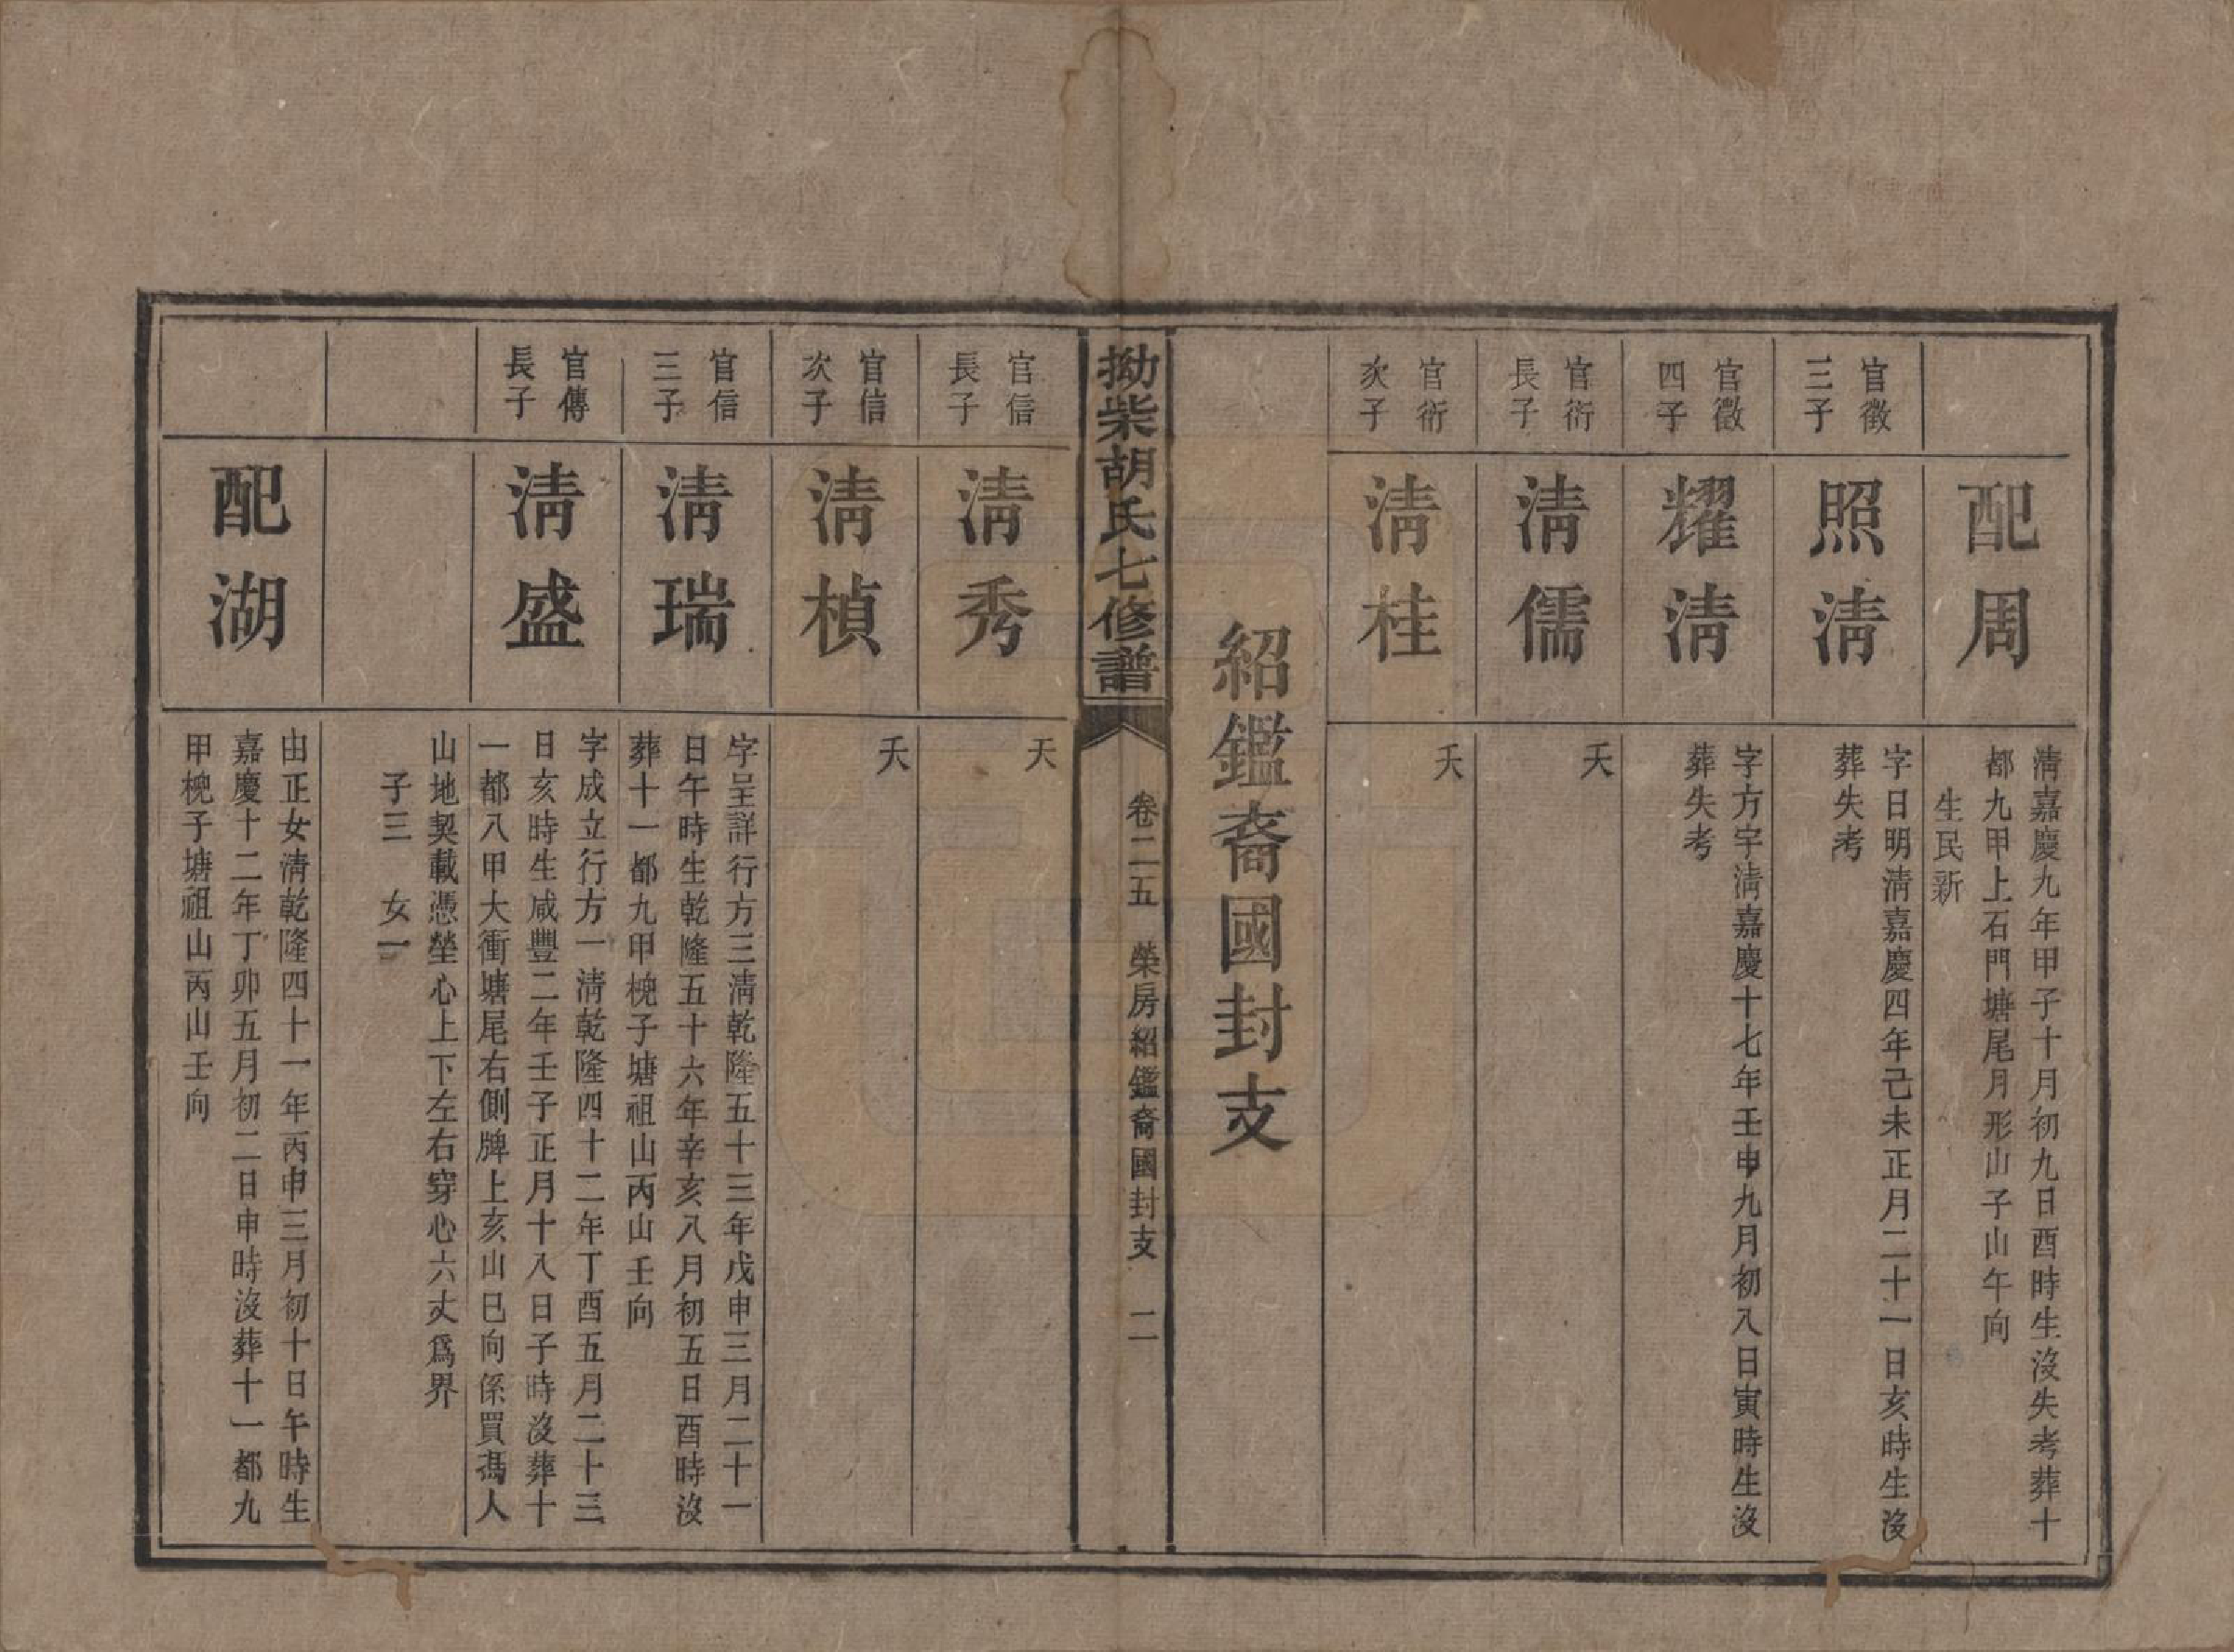 配周
清嘉慶九年甲子十月初九日酉時生沒失考葬十
都九甲上石門塘尾月形山子山午向
生民新
官徵
三子
照清
字日明清嘉慶四年己未正月二十一日亥時生沒
葬失考
官徵
四子
耀清
字方宇清嘉慶十七年壬申九月初八日寅時生沒
葬失考
官衍
長子
清儒
夭
官衍
次子
清桂
夭
紹鑑裔國封支
拗柴胡氏七修譜
卷二五
榮房紹鑑裔國封支
二
官信
長子
清秀
夭
官信
次子
清楨
夭
官信
三子
清瑞
字呈詳行方三清乾隆五十三年戊申三月二十一
日午時生乾隆五十六年辛亥八月初五日酉時沒
葬十一都九甲槐子塘祖山丙山壬向
官傳
長子
清盛
字成立行方一清乾隆四十二年丁酉五月二十三
日亥時生咸豐二年壬子正月十八日子時沒葬十
一都八甲大衝塘尾右側牌上亥山巳向係買馮人
山地契載憑塋心上下左右穿心六丈為界
子三 女一
配湖
由正女清乾隆四十一年丙申三月初十日午時生
嘉慶十二年丁卯五月初二日申時沒葬十一都九
甲槐子塘祖山丙山壬向